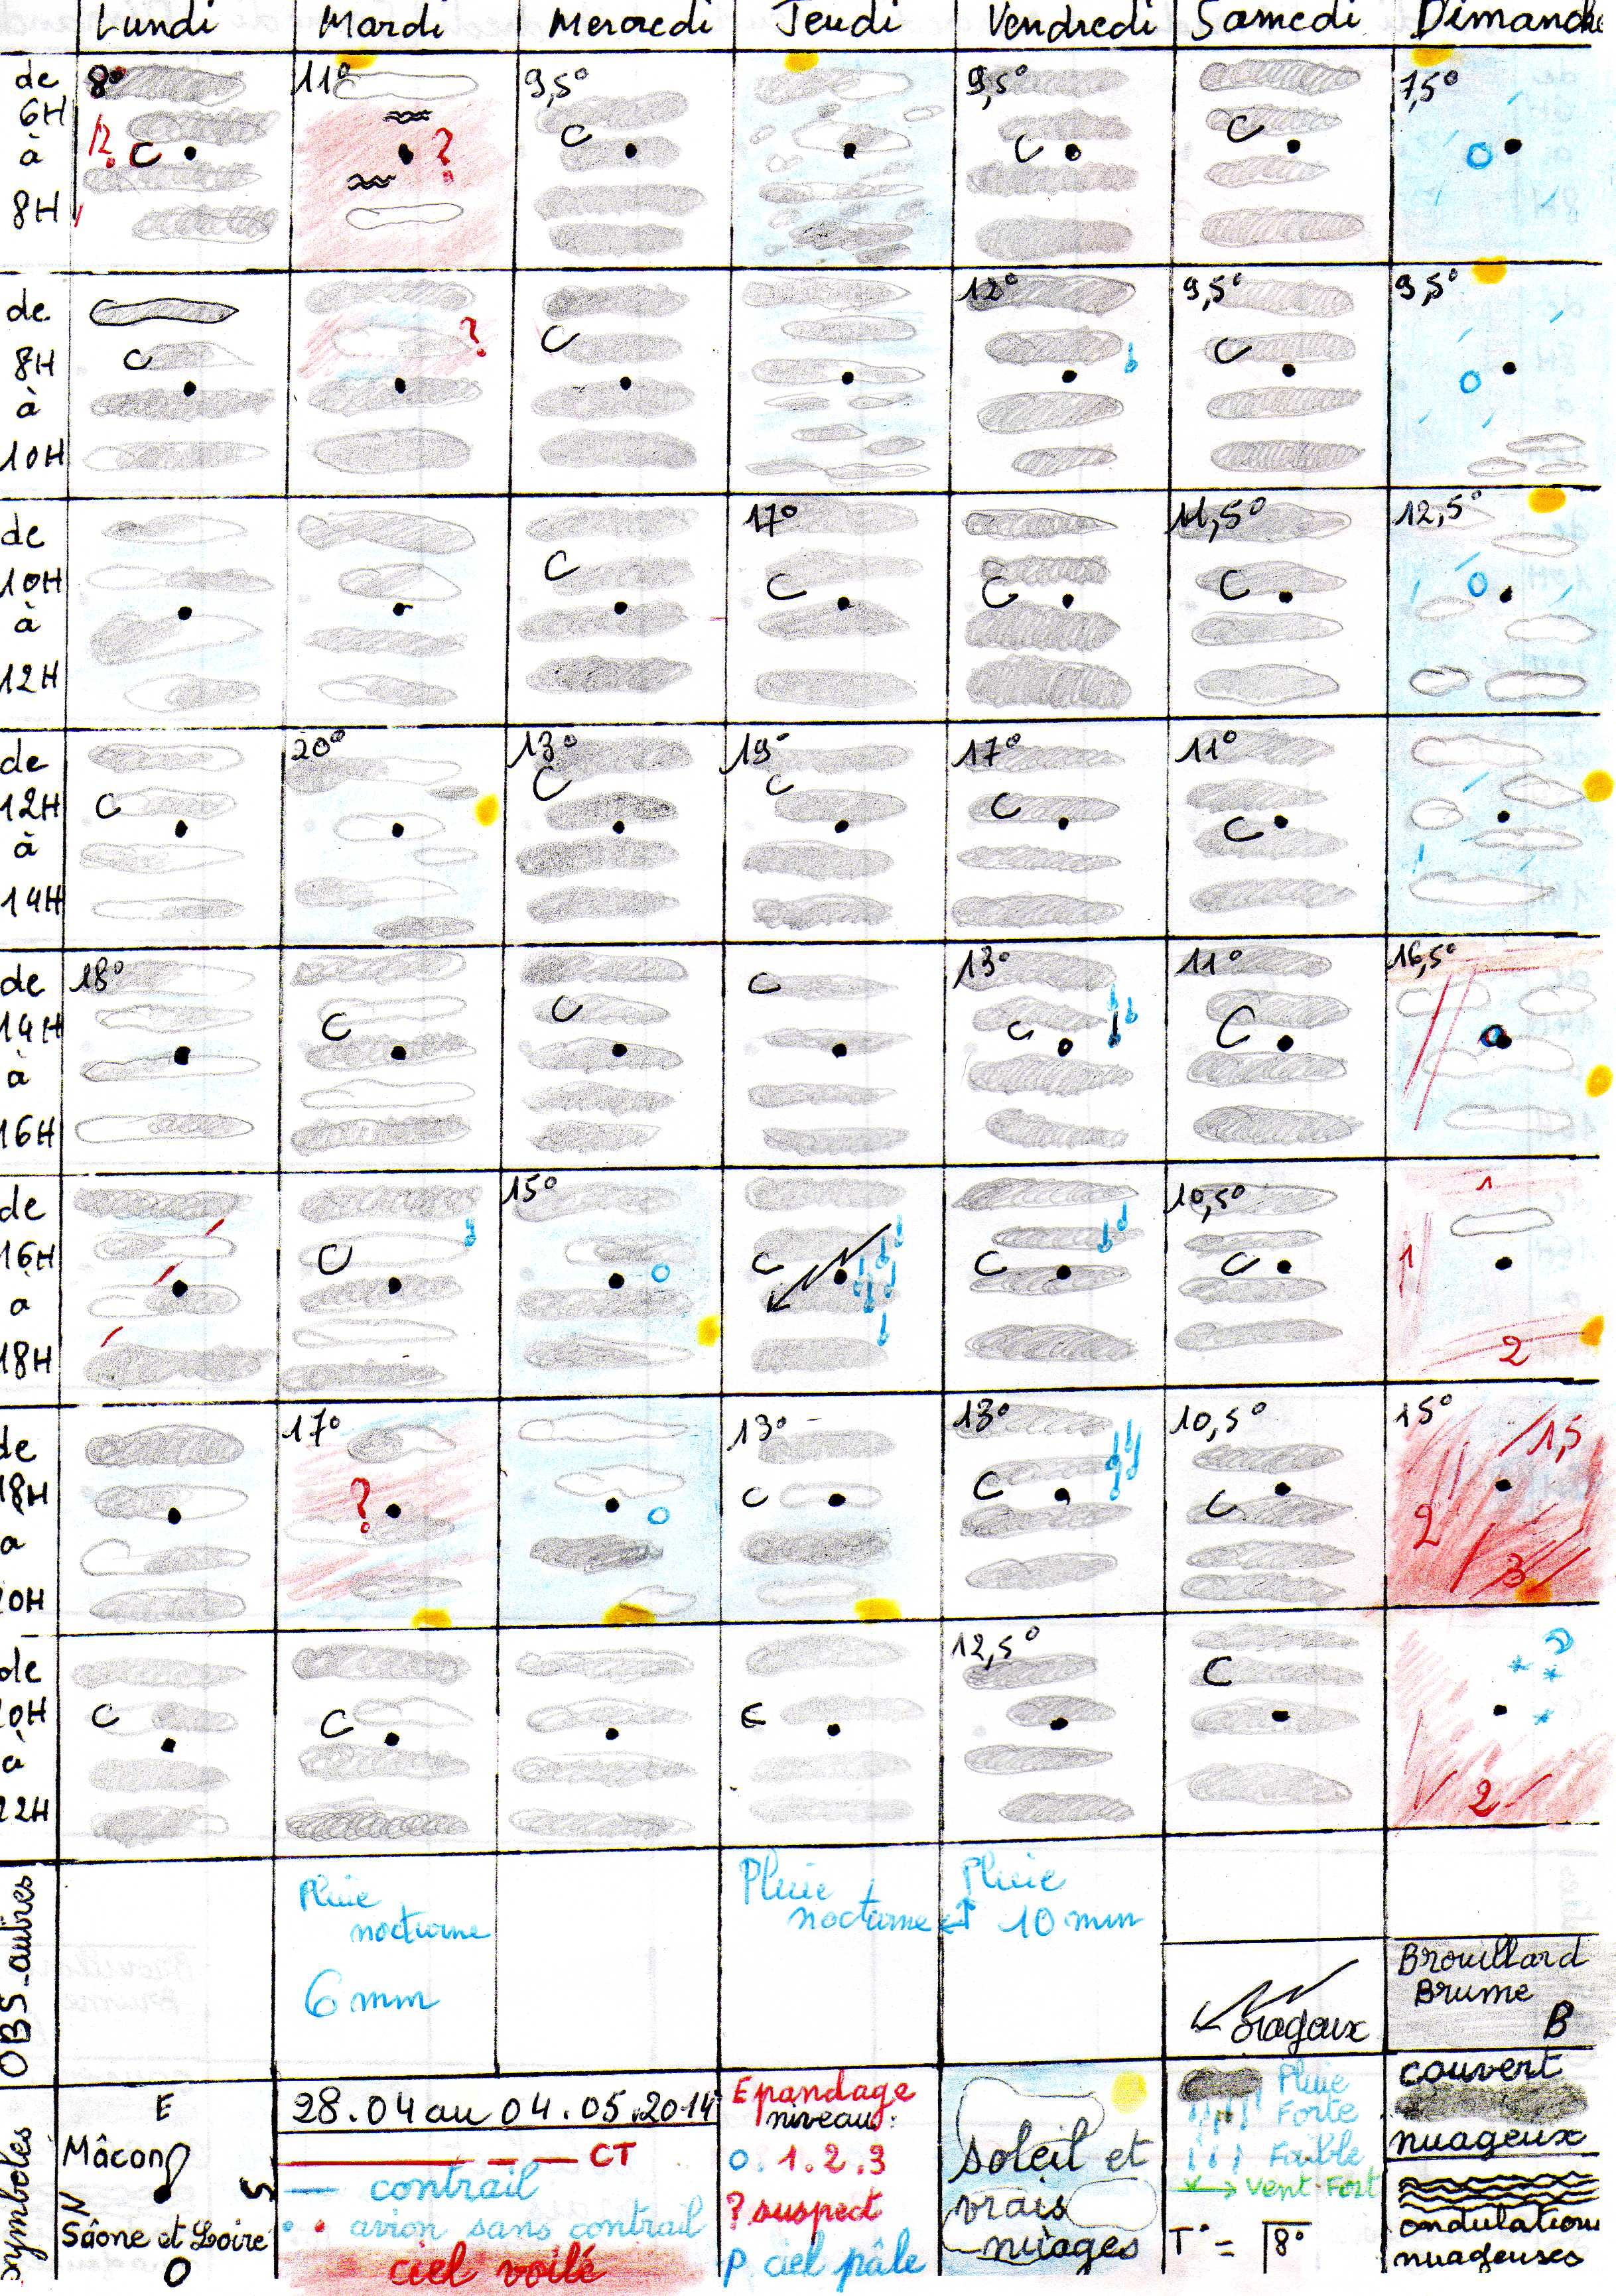 Lundi Mardi Mercredi Jeudi Vendredi Samedi Dimanche
de 6H à 8H
8° 11° 9,5° 9,5° 7,5°
C ? C C C
de 8H à 10H
12° 9,5° 9,5°
C ? C C
de 10H à 12H
17° 11,5° 12,5°
C C C C
de 12H à 14H
20° 13° 19° 17° 11°
C C C C C
de 14H à 16H
18° 13° 11° 16,5°
C C C C C
de 16H à 18H
15° 10,5°
C C C C 1
1
2
de 18H à 20H
17° 13° 13° 10,5° 15°
? C C C 1,5
2
3
de 20H à 22H
12,5°
C C C 2
OBS_autres
Pluie
nocturne
6 mm
Pluie
nocturne et
Pluie
10 mm
orageux
Brouillard
Brume
B
symboles
E
Mâcon
N S
Sâone et Loire
O
28.04 au 04.05.2014
CT
contrail
avion sans contrail
ciel voilé
Epandage
niveau:
0.1.2.3
? suspect
P. ciel pâle
soleil et
vrais
nuages
Pluie
Forte
Faible
Vent Fort
T° = 8°
couvert
nuageux
ondulations
nuageuses